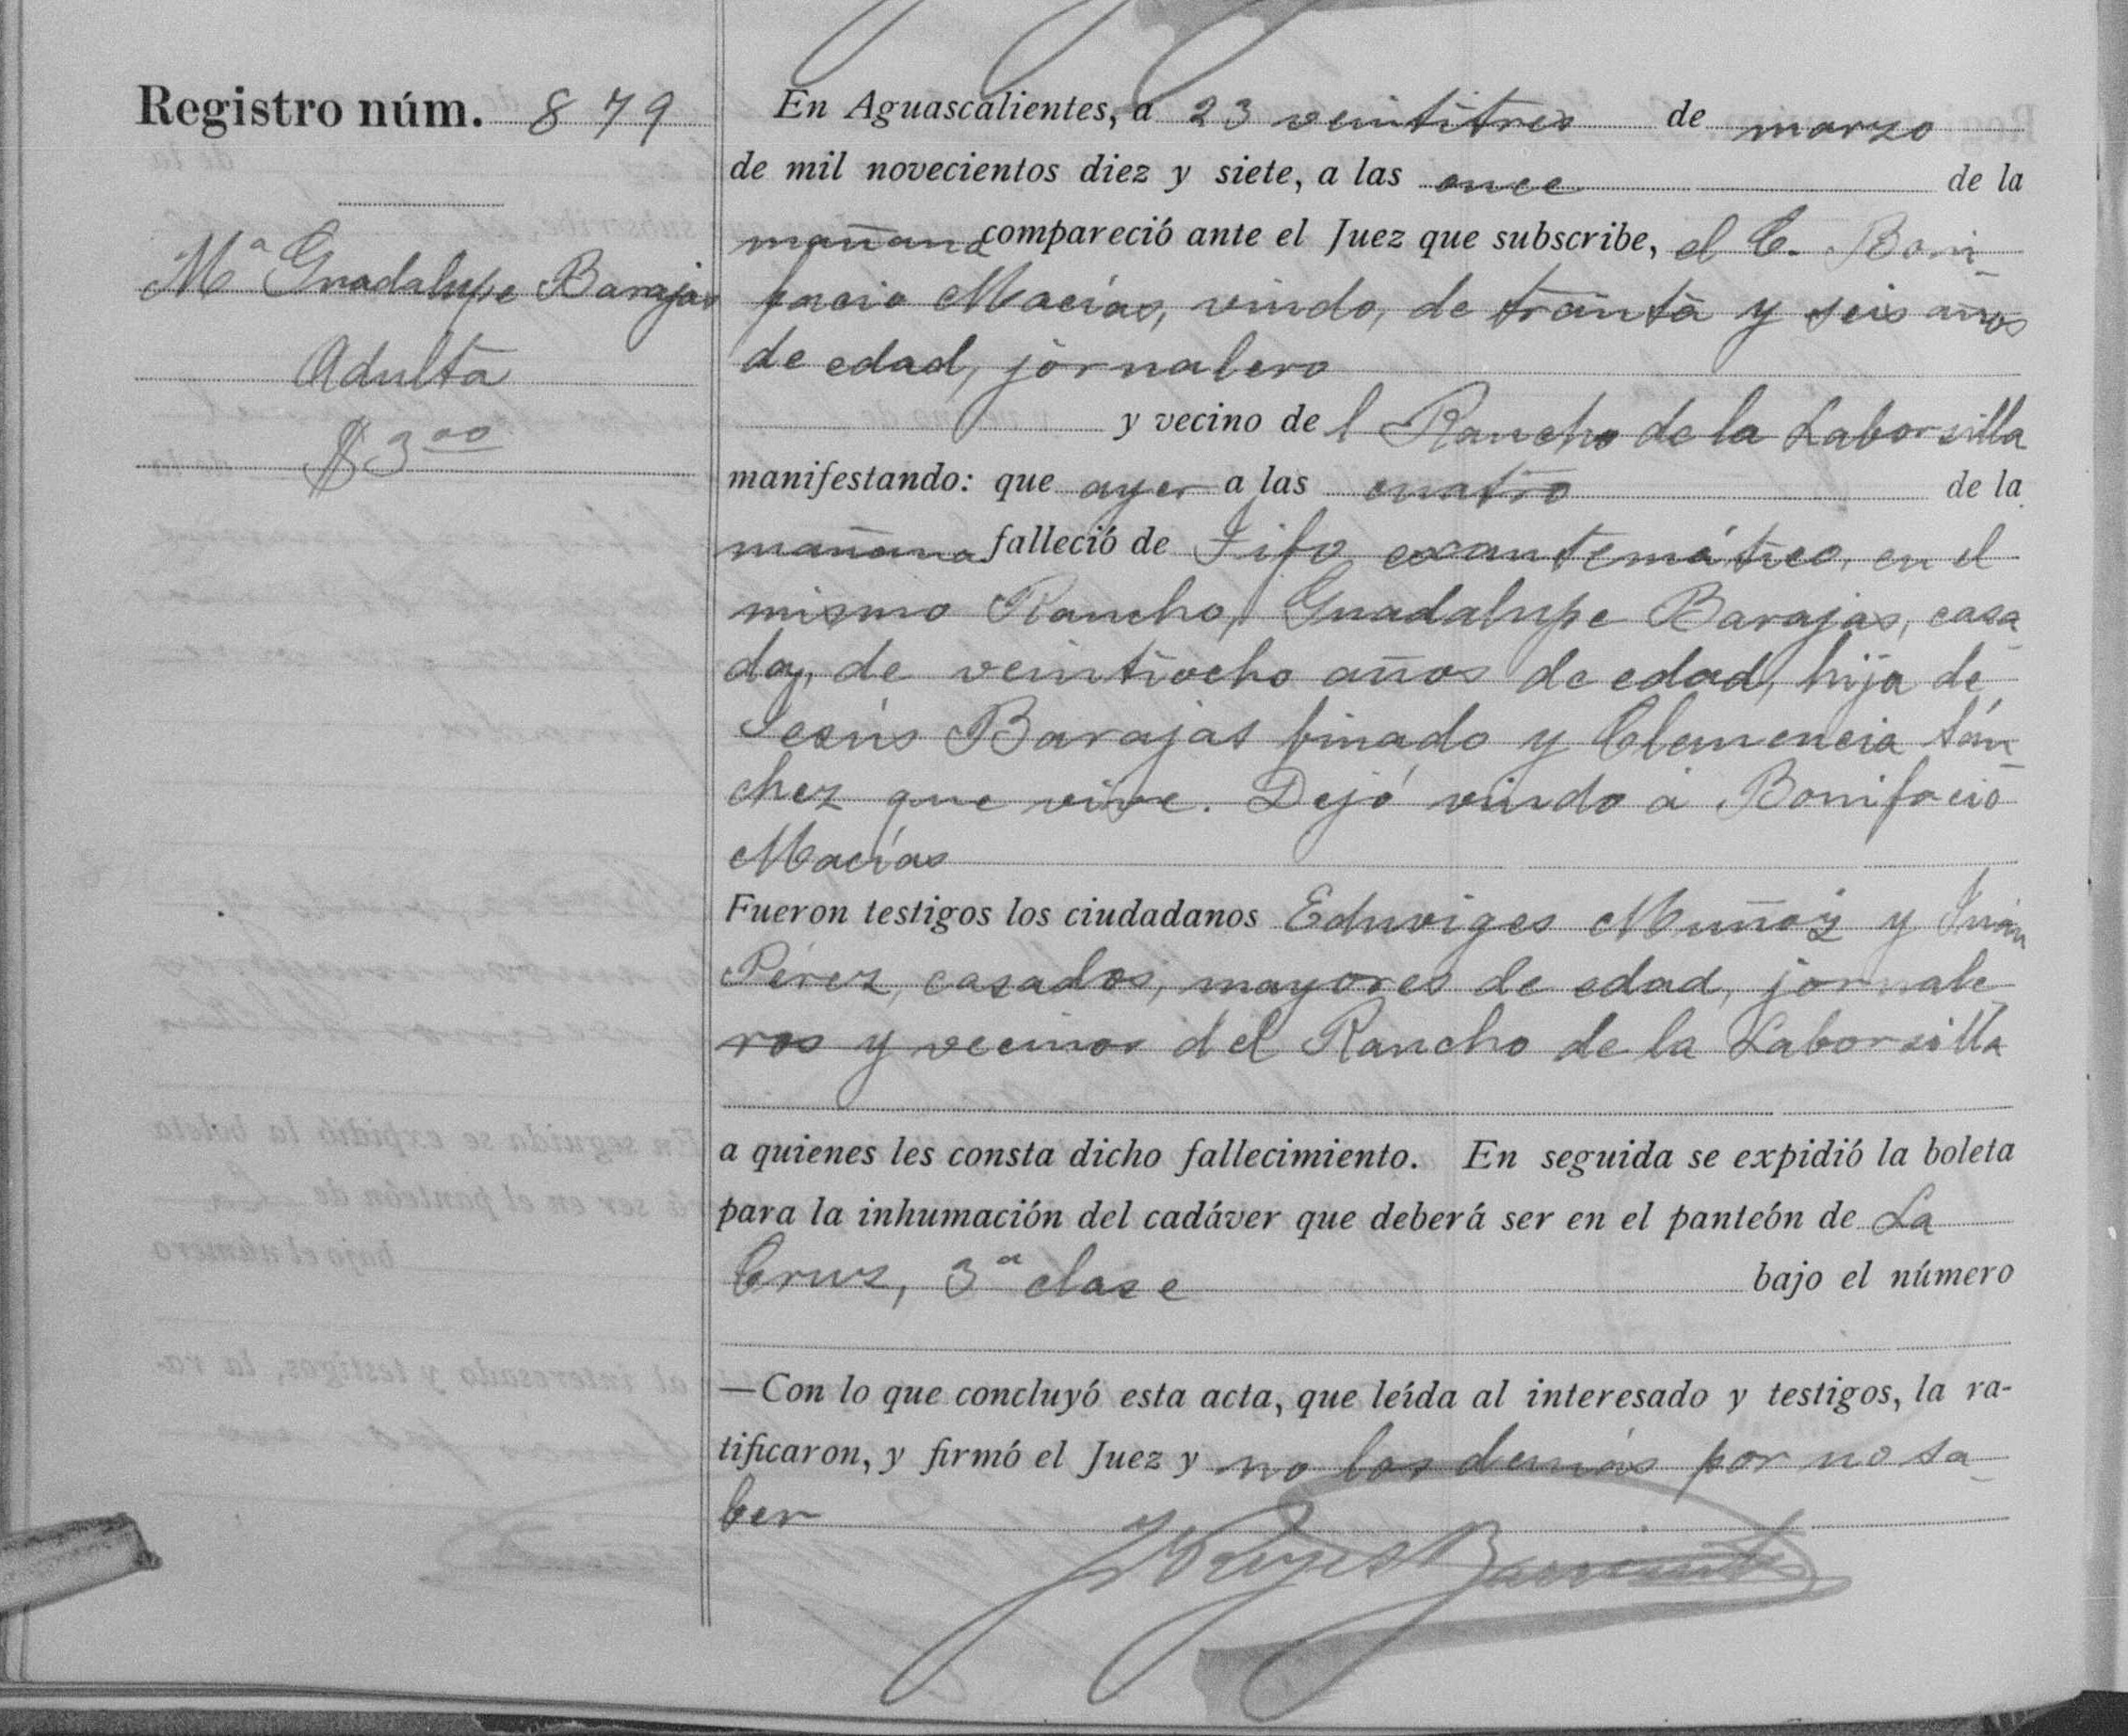 Registro núm. 879
Mª Guadalupe Barajas
Adulta
$3 00
En Aguascalientes, a 23 veintitres de marzo
de mil novecientos diez y siete, a las once de la
mañana compareció ante el Juez que subscribe, el C. Boni
facio Macías, viudo, de trainta y seis años
de edad, jornalero
y vecino de l Rancho de la Laborsilla
manifestando: que ayer a las cuatro de la
mañana falleció de Tifo exantemático, en el
mismo Rancho, Guadalupe Barajas, casa
da, de veintiocho años de edad, hija de
Jesús Barajas finado y Clemencia Sán
chez que vive. Dejó viudo á Bonifacio
Macías
Fueron testigos los ciudadanos Eduviges Muñoz y Juan
Pérez, casados, mayores de edad, jornale
ros y vecinos del Rancho de la Laborsilla
a quienes les consta dicho fallecimiento. En seguida se expidió la boleta
para la inhumación del cadáver que deberá ser en el panteón de La
Cruz, 3ª clase bajo el número
—Con lo que concluyó esta acta, que leída al interesado y testigos, la ra-
tificaron, y firmó el Juez y no los demás por no sa
ber